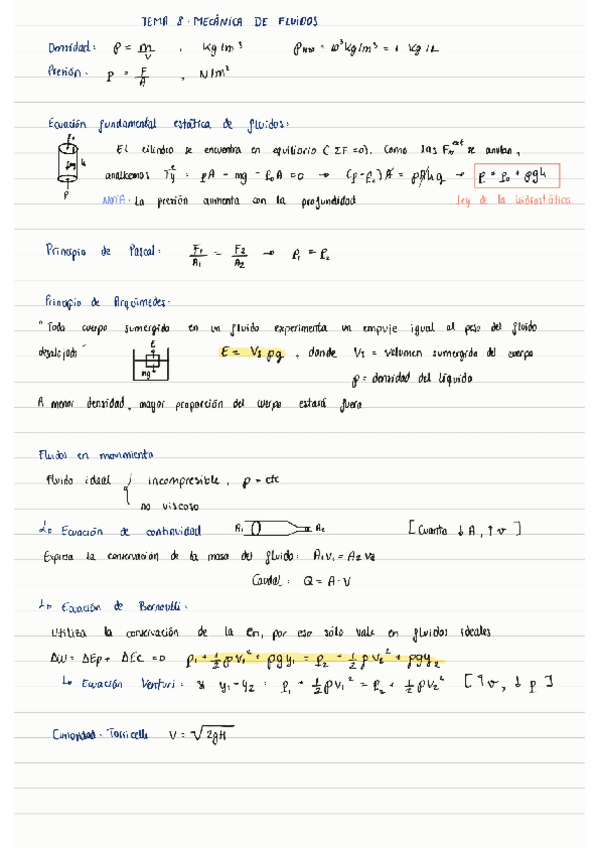 TEMA 8. MECÁNICA DE FLUIDOS
Densidad: ρ = m/V , kg/m³ ρH₂O = 10³ kg/m³ = 1 kg/L
Presión. P = F/A , N/m²
Ecuación fundamental estática de fluidos:
El cilindro se encuentra en equilibrio (ΣF = 0). Como las F ext se anulan,
analizamos : pA - mg - p₀A = 0 → (p - p₀)A = ρAhg → p = p₀ + ρgh
NOTA. La presión aumenta con la profundidad ley de la hidrostática
P₀
mg
h
P
Principio de Pascal: F₁/A₁ = F₂/A₂ → p₁ = p₂
Principio de Arquímedes.
"Todo cuerpo sumergido en un fluido experimenta un empuje igual al peso del fluido
desalojado" E = Vs ρg , donde Vs = volumen sumergido del cuerpo
E
mg
ρ = densidad del líquido
A menor densidad, mayor proporción del cuerpo estará fuera
Fluidos en movimiento
Fluido ideal { incompresible, ρ = cte
no viscoso
↳ Ecuación de continuidad A₁ A₂ [Cuanto ↓A, ↑v]
Expresa la conservación de la masa del fluido: A₁v₁ = A₂v₂
Caudal: Q = A·V
↳ Ecuación de Bernoulli.
Utiliza la conservación de la En, por eso sólo vale en fluidos ideales
ΔW = ΔEp + ΔEc =0 p₁ + ½ρv₁² + ρgy₁ = p₂ + ½ρv₂² + ρgy₂
↳ Ecuación Venturi: si y₁ = y₂ : p₁ + ½ρv₁² = p₂ + ½ρv₂² [↑v, ↓p]
Curiosidad. Torricelli V = √2gH